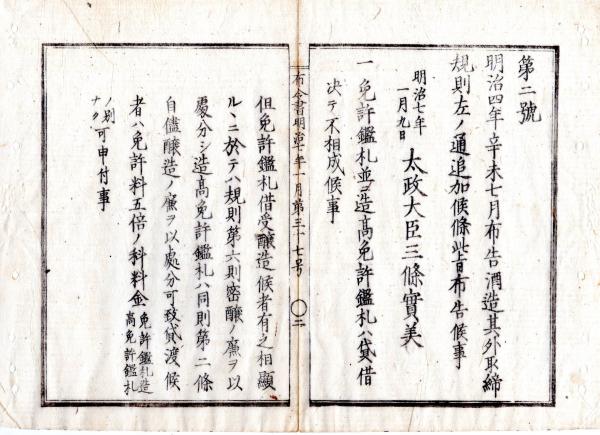 第二號
明治四年辛未七月布告酒造其外取締
規則左ノ通追加候條此旨布告候事
明治七年
一月九日
太政大臣三條實美
一 免許鑑札並ニ造高免許鑑札ハ貸借
決テ不相成候事
布令書明治七年一月第三十七号
〇二
但免許鑑札借受釀造候者有之相顯
ルヽニ於テハ規則第六則密釀ノ廉ヲ以
處分シ造高免許鑑札ハ同則第二條
自儘釀造ノ廉ヲ以處分可致貸渡候
者ハ免許料五倍ノ科料金
免許鑑札造
高免許鑑札
ノ別
ナク
可申付事